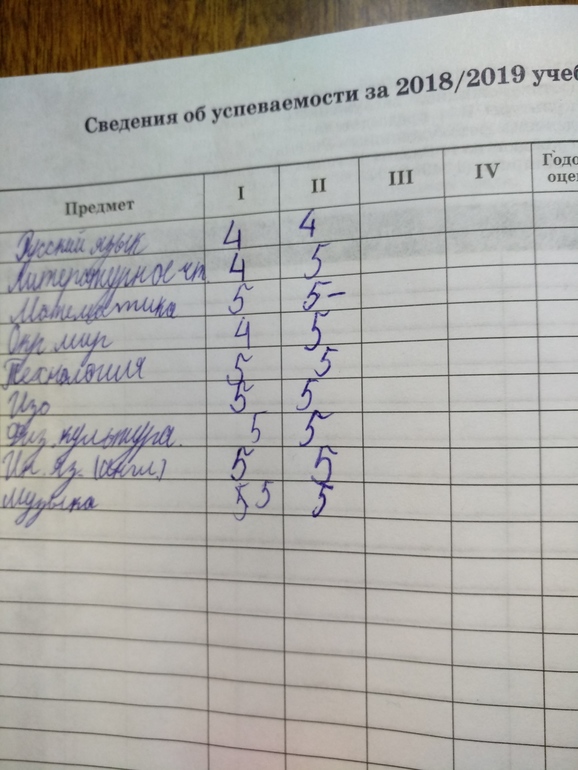 Сведения об успеваемости за 2018/2019 учеб
Предмет I II III IV Годо
оцен
Русский язык 4 4
Литературное чт 4 5
Математика 5 5-
Окр. мир 4 5
Технология 5 5
Изо 5 5
Физ. культура. 5 5
Ин. яз. (англ) 5 5
Музыка 5 5 5